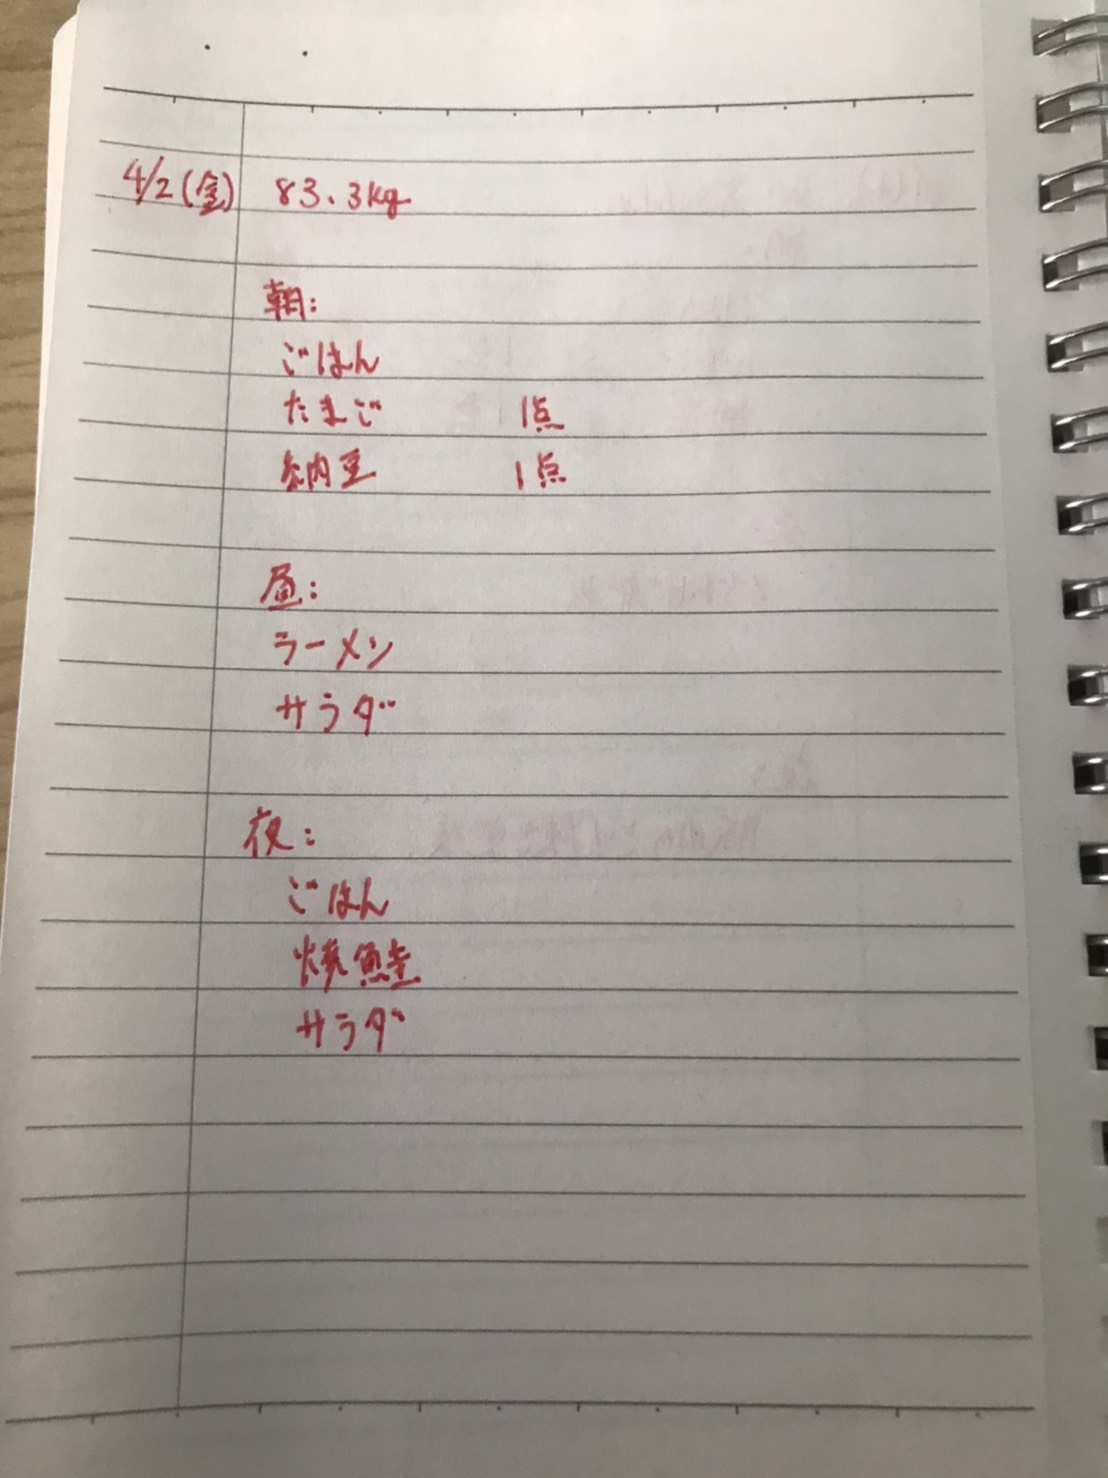 4/2(金) 83.3kg
朝:
ごはん
たまご 1点
納豆 1点
昼:
ラーメン
サラダ
夜:
ごはん
焼鮭
サラダ